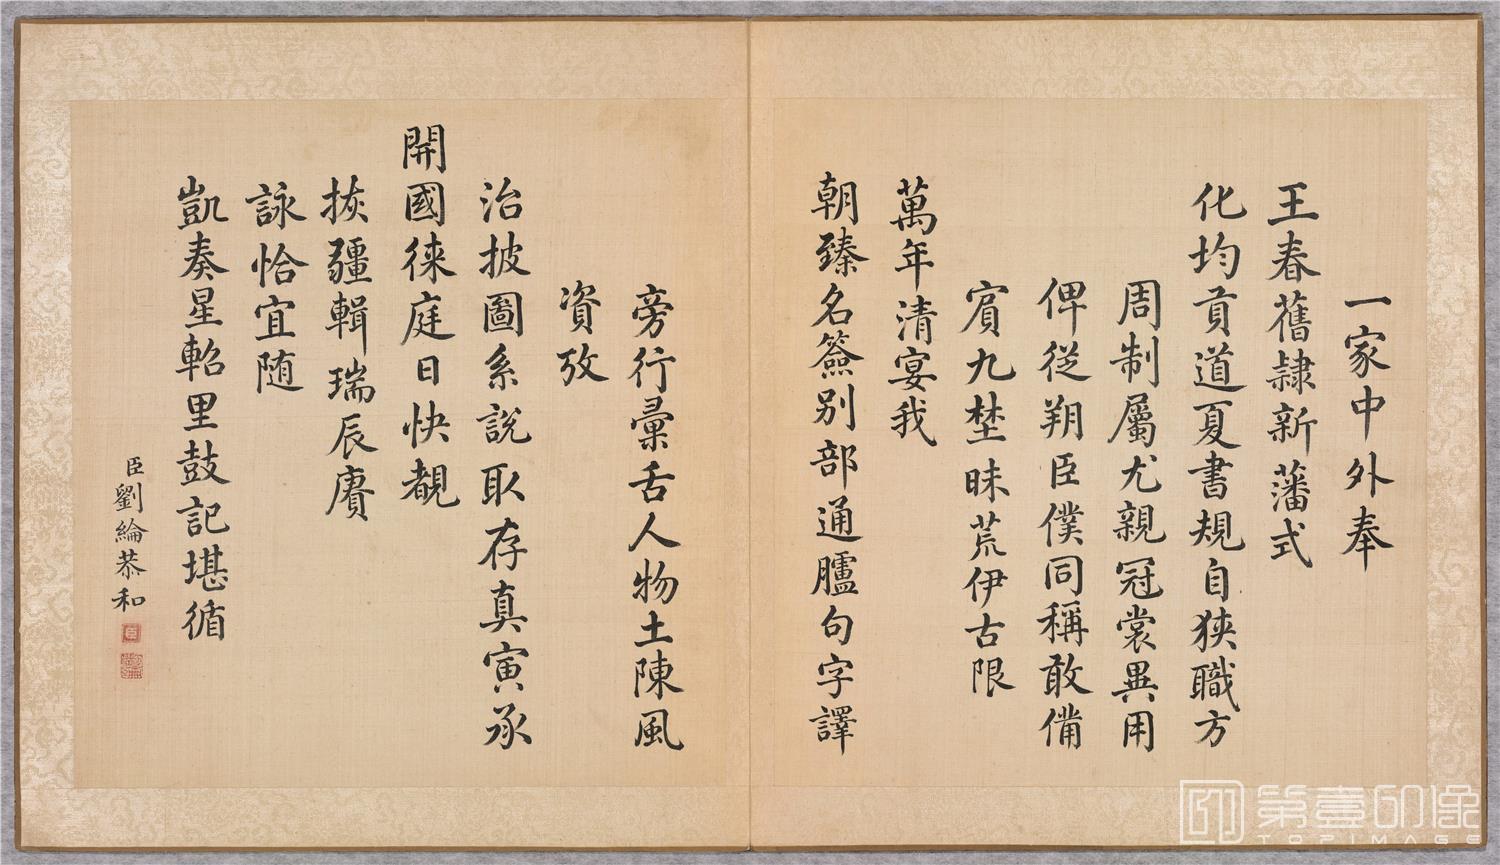 一家中外奉
王春舊隷新藩式
化均貢道夏書規自狹職方
周制屬尤親冠裳異用
俾從朔臣僕同稱敢備
賓九埜昧荒伊古限
萬年清宴我
朝臻名簽別部通臚句字譯
旁行彙舌人物土陳風
資攷
治披圖系說取存真寅承
開國徠庭日快覩
拔疆輯瑞辰賡
詠恰宜随
凱奏星軺里鼓記堪循
臣劉綸恭和
第壹印像
TOPIMAGE